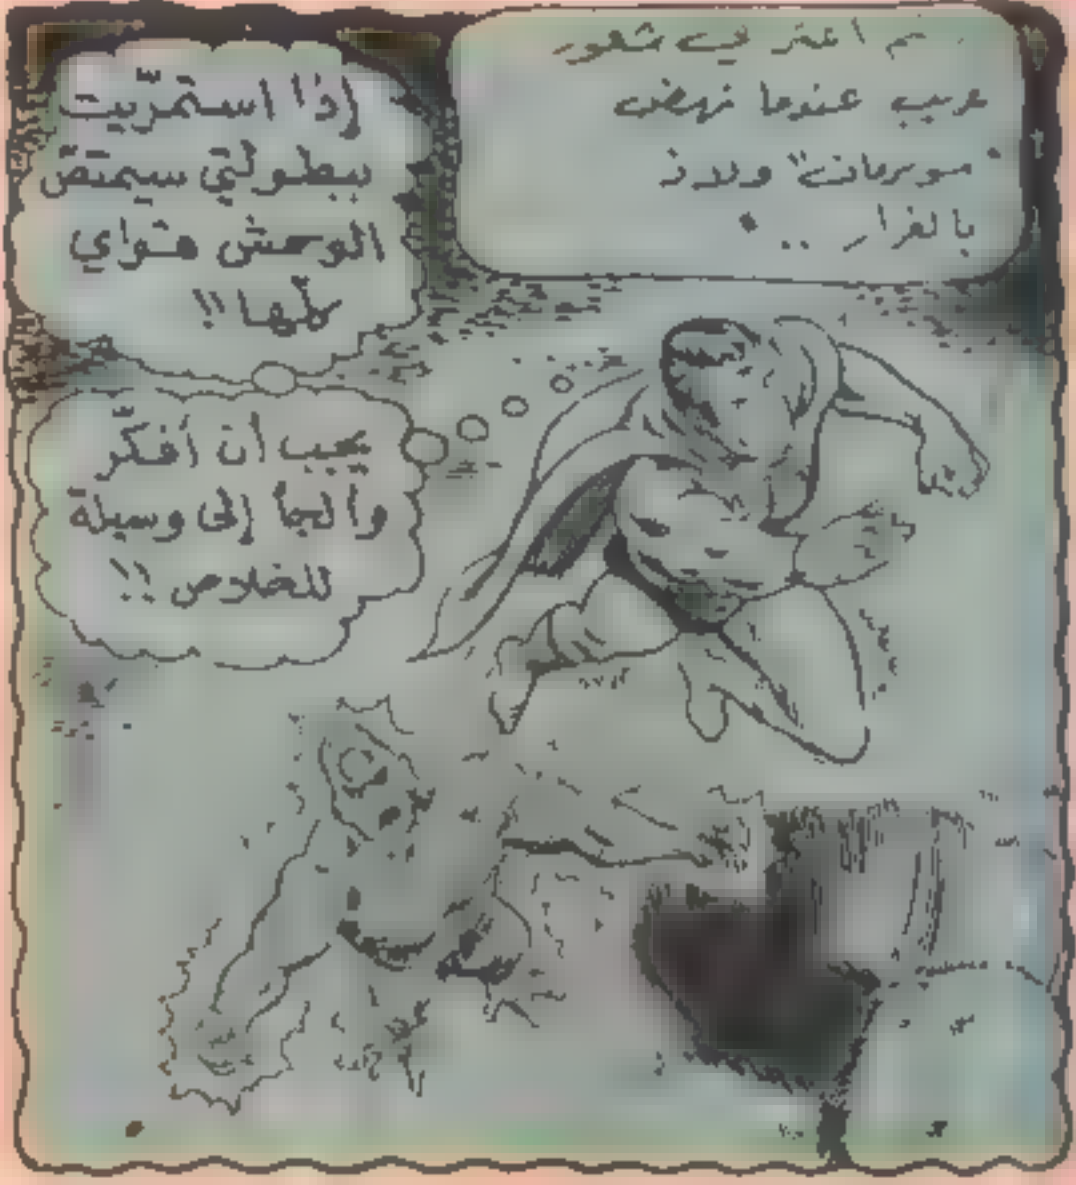 ثم اعتر ني شعور
غريب عندما نهض
"سوبرمان" ولاذ
بالفرار ..
إذا استمرّيت
ببطولتي سيمتصّ
الوحش قواي
كلّها !!
يجب أن أفكّر
وألجأ إلى وسيلة
للخلاص !!